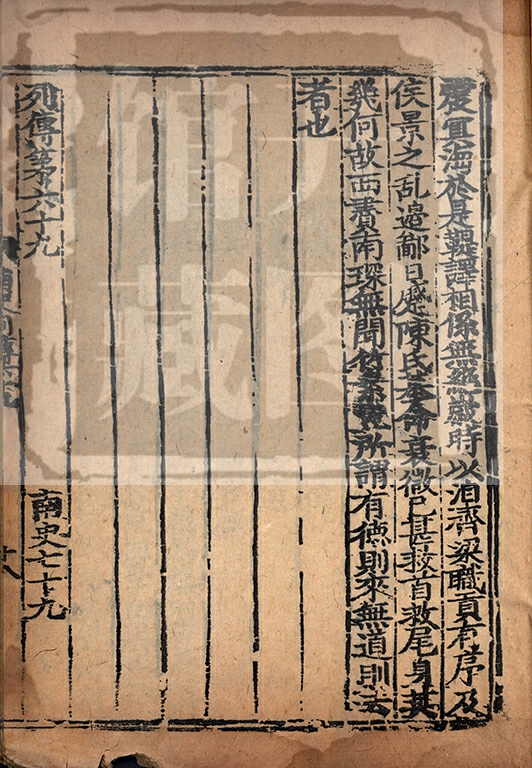 震冥海於是鞮譯相係無絕歲時以洎濟梁職貢有序及
侯景之乱邉鄙日蹙陳氏基命衰微已甚救首救尾身其
幾何故西賮南琛無聞竹素豈所謂有德則來無道則去
者也
列傳第六十九　南史七十九
十八
馆
藏图